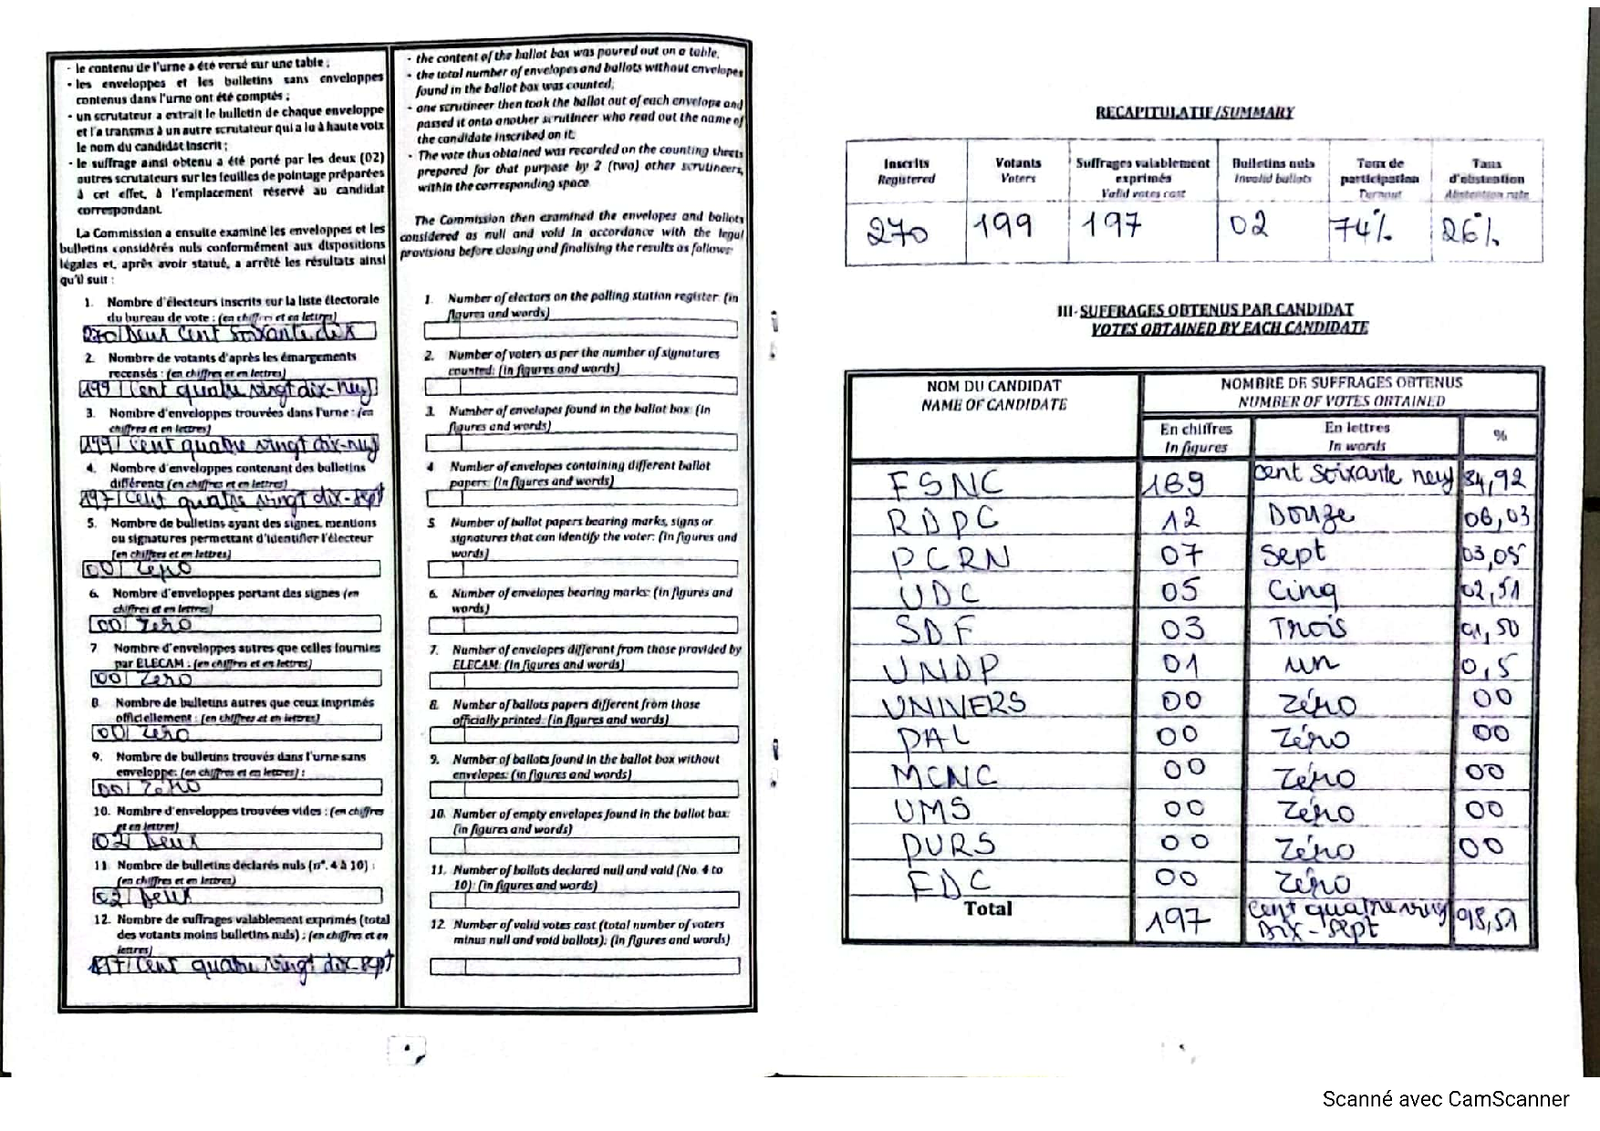 - le contenu de l'urne a été versé sur une table ;
- les enveloppes et les bulletins sans enveloppes
contenus dans l'urne ont été comptés ;
- un scrutateur a extrait le bulletin de chaque enveloppe
et l'a transmis à un autre scrutateur qui a lu à haute voix
le nom du candidat inscrit ;
- le suffrage ainsi obtenu a été porté par les deux (02)
autres scrutateurs sur les feuilles de pointage préparées
à cet effet, à l'emplacement réservé au candidat
correspondant.
La Commission a ensuite examiné les enveloppes et les
bulletins considérés nuls conformément aux dispositions
légales et, après avoir statué, a arrêté les résultats ainsi
qu'il suit :
1. Nombre d'électeurs inscrits sur la liste électorale
du bureau de vote : (en chiffres et en lettres)
270 Deux cent soixante dix
2. Nombre de votants d'après les émargements
recensés : (en chiffres et en lettres)
199 Cent quatre vingt dix-neuf
3. Nombre d'enveloppes trouvées dans l'urne : (en
chiffres et en lettres)
199 Cent quatre vingt dix-neuf
4. Nombre d'enveloppes contenant des bulletins
différents (en chiffres et en lettres)
197 Cent quatre vingt dix-sept
5. Nombre de bulletins ayant des signes, mentions
ou signatures permettant d'identifier l'électeur
(en chiffres et en lettres)
00 Zéro
6. Nombre d'enveloppes portant des signes (en
chiffres et en lettres)
00 Zéro
7 Nombre d'enveloppes autres que celles fournies
par ELECAM : (en chiffres et en lettres)
00 Zéro
8 Nombre de bulletins autres que ceux imprimés
officiellement : (en chiffres et en lettres)
00 Zéro
9. Nombre de bulletins trouvés dans l'urne sans
enveloppe: (en chiffres et en lettres) :
00 Zéro
10. Nombre d'enveloppes trouvées vides : (en chiffres
et en lettres)
02 Deux
11 Nombre de bulletins déclarés nuls (n°. 4 à 10) :
(en chiffres et en lettres)
02 Deux
12. Nombre de suffrages valablement exprimés (total
des votants moins bulletins nuls) : (en chiffres et en
lettres)
197 Cent quatre vingt dix-sept
- the content of the ballot box was poured out on a table,
- the total number of envelopes and ballots without envelopes
found in the ballot box was counted;
- one scrutineer then took the ballot out of each envelope and
passed it onto another scrutineer who read out the name of
the candidate inscribed on it;
- The vote thus obtained was recorded on the counting sheets
prepared for that purpose by 2 (two) other scrutineers,
within the corresponding space.
The Commission then examined the envelopes and ballots
considered as null and void in accordance with the legal
provisions before closing and finalising the results as follows:
1. Number of electors on the polling station register: (in
figures and words)
2. Number of voters as per the number of signatures
counted: (in figures and words)
3. Number of envelopes found in the ballot box: (in
figures and words)
4 Number of envelopes containing different ballot
papers: (in figures and words)
5 Number of ballot papers bearing marks, signs or
signatures that can identify the voter: (in figures and
words)
6. Number of envelopes bearing marks: (in figures and
words)
7. Number of envelopes different from those provided by
ELECAM: (in figures and words)
8. Number of ballots papers different from those
officially printed: (in figures and words)
9. Number of ballots found in the ballot box without
envelopes: (in figures and words)
10. Number of empty envelopes found in the ballot box:
(in figures and words)
11. Number of ballots declared null and void (No. 4 to
10): (in figures and words)
12 Number of valid votes cast (total number of voters
minus null and void ballots): (in figures and words)
RECAPITULATIF/SUMMARY
Inscrits Votants Suffrages valablement Bulletins nuls Taux de Taux
Registered Voters exprimés Invalid ballots participation d'abstention
Valid votes cast Turnout Abstention rate
270 199 197 02 74% 26%
III- SUFFRAGES OBTENUS PAR CANDIDAT
VOTES OBTAINED BY EACH CANDIDATE
NOM DU CANDIDAT NOMBRE DE SUFFRAGES OBTENUS
NAME OF CANDIDATE NUMBER OF VOTES OBTAINED
En chiffres En lettres %
In figures In words
FSNC 169 cent soixante neuf 84,92
RDPC 12 Douze 06,03
PCRN 07 Sept 03,05
UDC 05 Cinq 02,51
SDF 03 Trois 01,50
UNDP 01 un 0,5
UNIVERS 00 Zéro 00
PAL 00 Zéro 00
MCNC 00 Zéro 00
UMS 00 Zéro 00
PURS 00 Zéro 00
FDC 00 Zéro
Total 197 Cent quatre vingt Dix-Sept 98,51
Scanné avec CamScanner